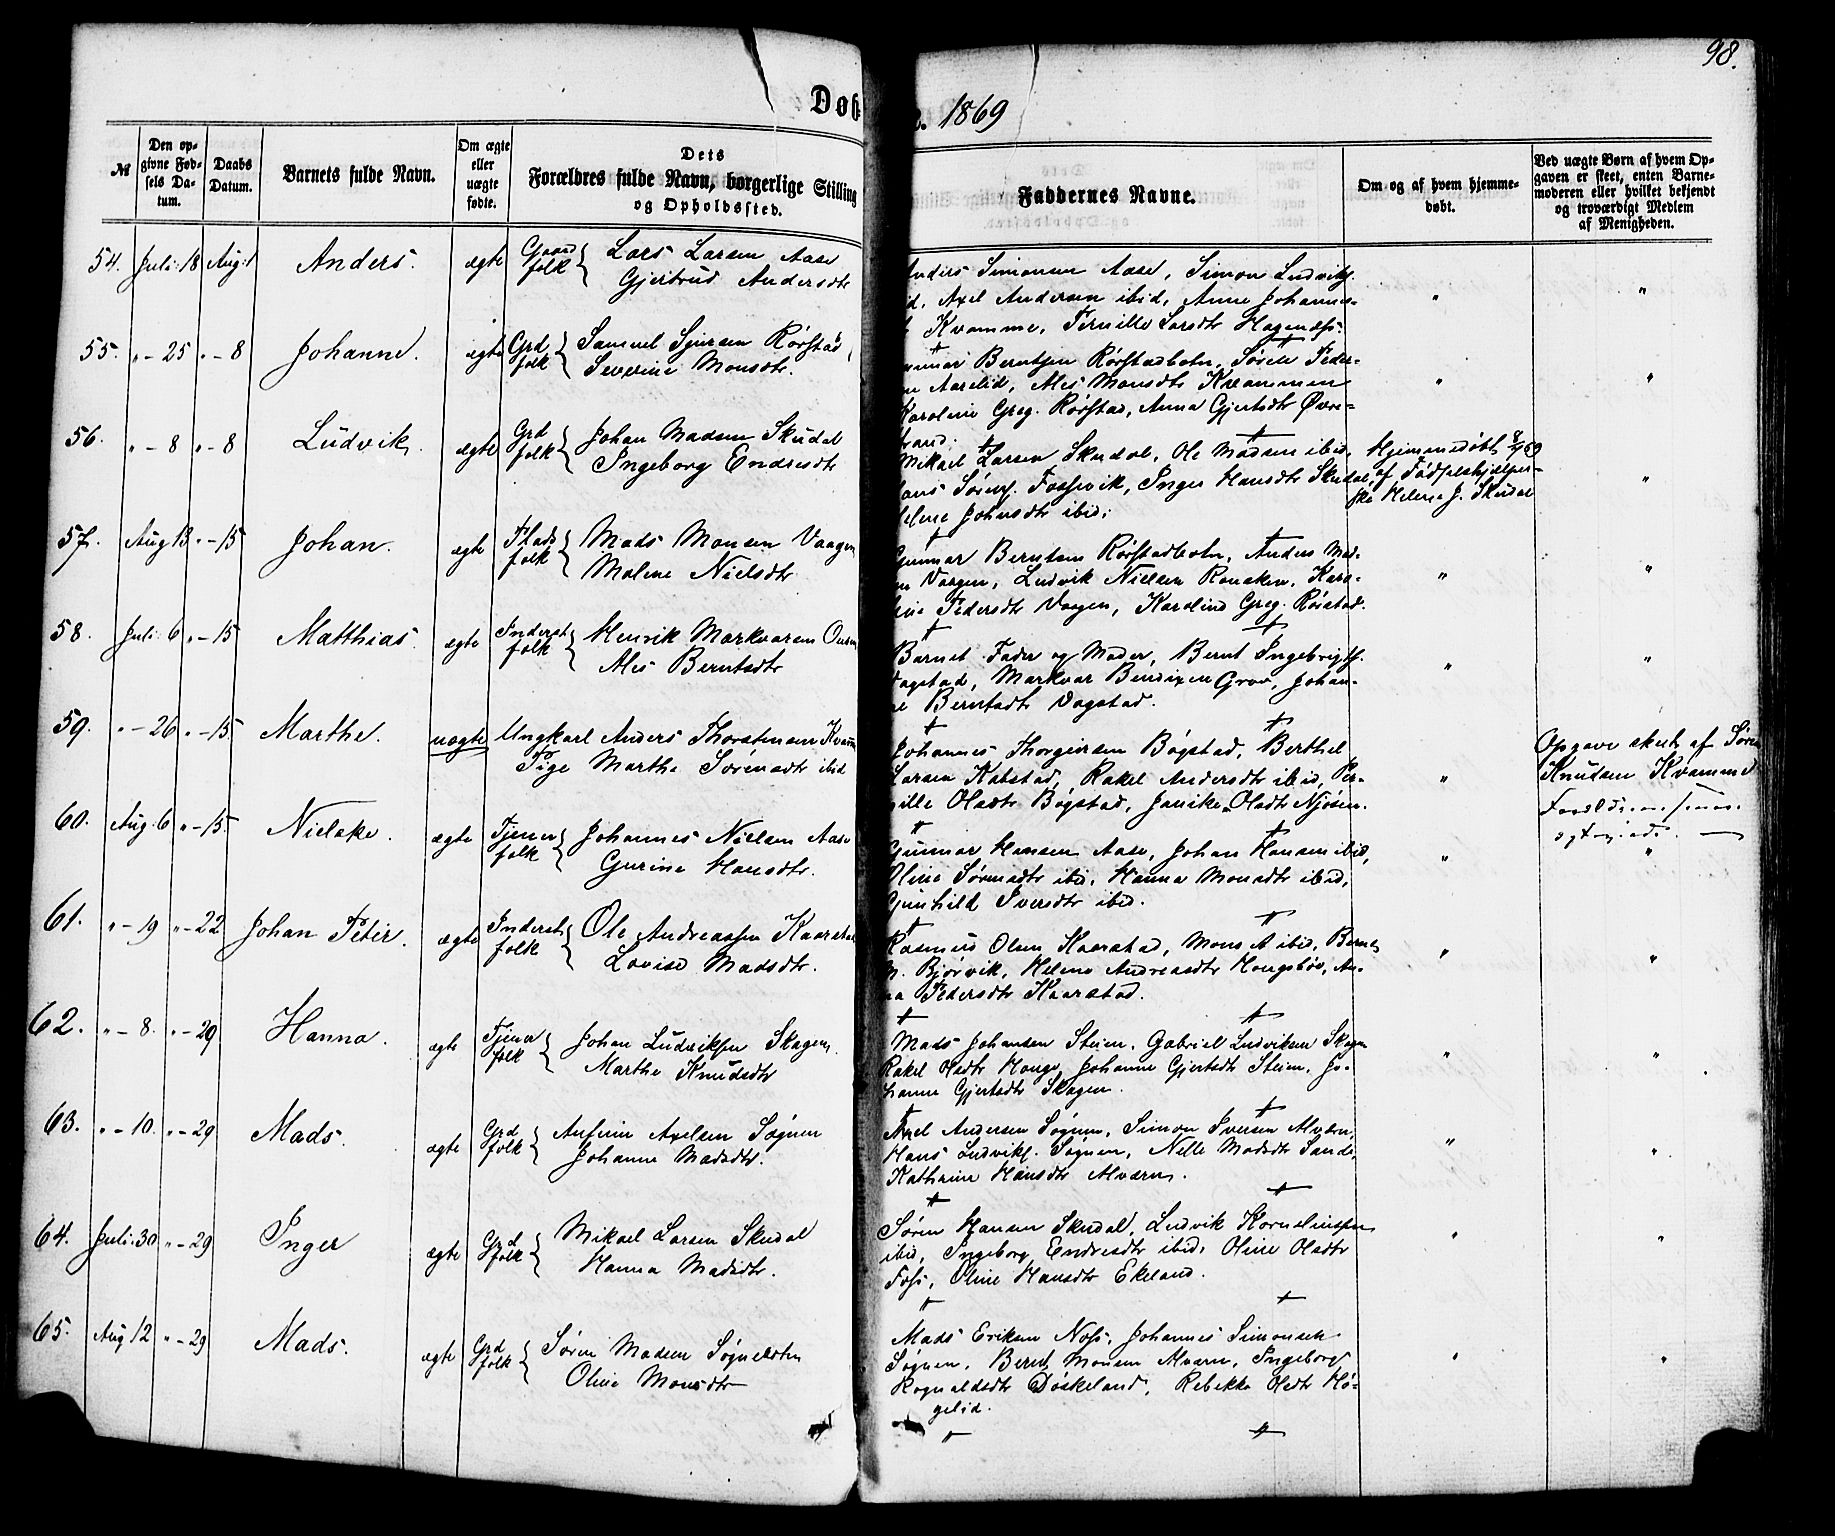 98.
Døb
e. 1869
№
Den op-
givne Fød-
sels Da-
tum.
Daabs
Datum.
Barnets fulde Navn.
Om ægte
eller
uægte
fødte.
Dets
Forældres fulde Navn, borgerlige Stilling
og Opholdssted.
Faddernes Navne.
Om og af hvem hjemme-
døbt.
Ved uægte Børn af hvem Op-
gaven er skeet, enten Barne-
moderen eller hvilket bekjendt
og troværdigt Medlem
af Menigheden.
54. Juli 18 Aug. 1 Anders. ægte Gaard folk { Lars Larsen Aase
Gjertrud Andersdtr
Anders Simonsen Aase, Simon Ludvigs.
id, Axel Andersen ibid, Anne Johannes-
Kvamme, Pernille Larsdtr Hagenæs.
55. " – 25 " – 8 Johanne. ægte Grd folk { Samuel Sjursen Rørstad
Severine Monsdtr.
Gunnar Berntsen Rørstadbotn, Søren Peder-
Aarelid, Ales Monsdtr Kvammen
Karoline Greg. Rørstad, Anna Gjertsdtr Øvre-
strand.
56. " – 8 " – 8 Ludvik. ægte Grd folk { Johan Madsen Skudal
Ingeborg Endresdtr
Mikael Larsen Skudal, Ole Madsen ibid,
Hans Sørens. Fossevik, Inger Hansdtr Skudal,
Helene Johnsdtr ibid.
Hjemmedøbt 8/7 69
af Fødselshjælper-
ske Helene J. Skudal
57. Aug 13 " – 15 Johan. ægte Plads folk { Mads Monsen Vaagen
Malene Nielsdtr
Gunnar Berntsen Rørstadbotn, Anders Mad-
Vaagen, Ludvik Nielsen Ronaken, Karo-
line Pedersdtr Vaagen, Karoline Greg. Rørstad.
58. Juli 6 " – 15 Matthias. ægte Inderst folk { Henrik Markvarsen
Ales Berntsdtr
Barnets Fader og Moder, Bernt Ingebrigts.
Vagstad, Markvar Bendixen Grov, Johan-
ne Berntsdtr Vagstad.
59. " – 26 " – 15. Marthe. uægte Ungkarl Anders Thorstensen Kvamme
Pige Marthe Sørensdtr ibid
Johannes Thorgersen Bøgstad, Berthel
Larsen Kabstad, Rakel Andersdtr ibid, Per-
nille Olsdtr Bøgstad, Jannike Olsdtr Njøsen.
Opgave skeet af Søren
Knutsen Kvamme
60. Aug. 6 " – 15. Nielske. ægte Tjener folk { Johannes Nielsen Aase
Gurine Hansdtr.
Gunnar Hansen Aase, Johan Hansen ibid,
Oline Sørensdtr ibid, Hanna Monsdtr ibid,
Gunhild Iversdtr ibid.
61. " – 19 " – 22 Johan Peter. ægte Inderst folk { Ole Andreassen Kaarstad
Lovise Madsdtr.
Rasmus Olsen Kaarstad, Mons A ibid, Bernt
M. Bjørvik, Helene Andreasdtr Hougsbø, An-
na Pedersdtr Kaarstad.
62. " – 8. " – 29 Hanna. ægte Tjener folk { Johan Ludviksen Skagen.
Marthe Knudsdtr
Mads Johansen Steien, Gabriel Ludviksen Skagen
Rakel Olsdtr Houge, Johanne Gjertsdtr Steien, Jo-
hanne Gjertsdtr Skagen.
63. " – 10. " – 29 Mads. ægte Grd folk { Anfinn Axelsen Søgnen
Johanne Madsdtr.
Axel Andersen Søgnen, Simon Iversen Alværn,
Hans Ludviks. Søgnen, Nelle Madsdtr Sande,
Kathrine Hansdtr Alværn.
64. Juli 30 " – 29 Inger ægte Grd folk { Mikael Larsen Skudal
Hanna Madsdtr.
Søren Hansen Skudal, Ludvik Korneliussen
ibid, Ingeborg Endresdtr ibid, Oline Olsdtr
Foss, Oline Hansdtr Ekeland.
65. Aug 12 " – 29 Mads. ægte Grd folk { Søren Madsen Søgnelotn
Oline Monsdtr
Mads Eriksen Noss, Johannes Simonsen
Søgnen, Bernt Monsen Alværn, Ingeborg
Rognaldsdtr Døskeland, Rebekka Olsdtr Hø-
gelid.